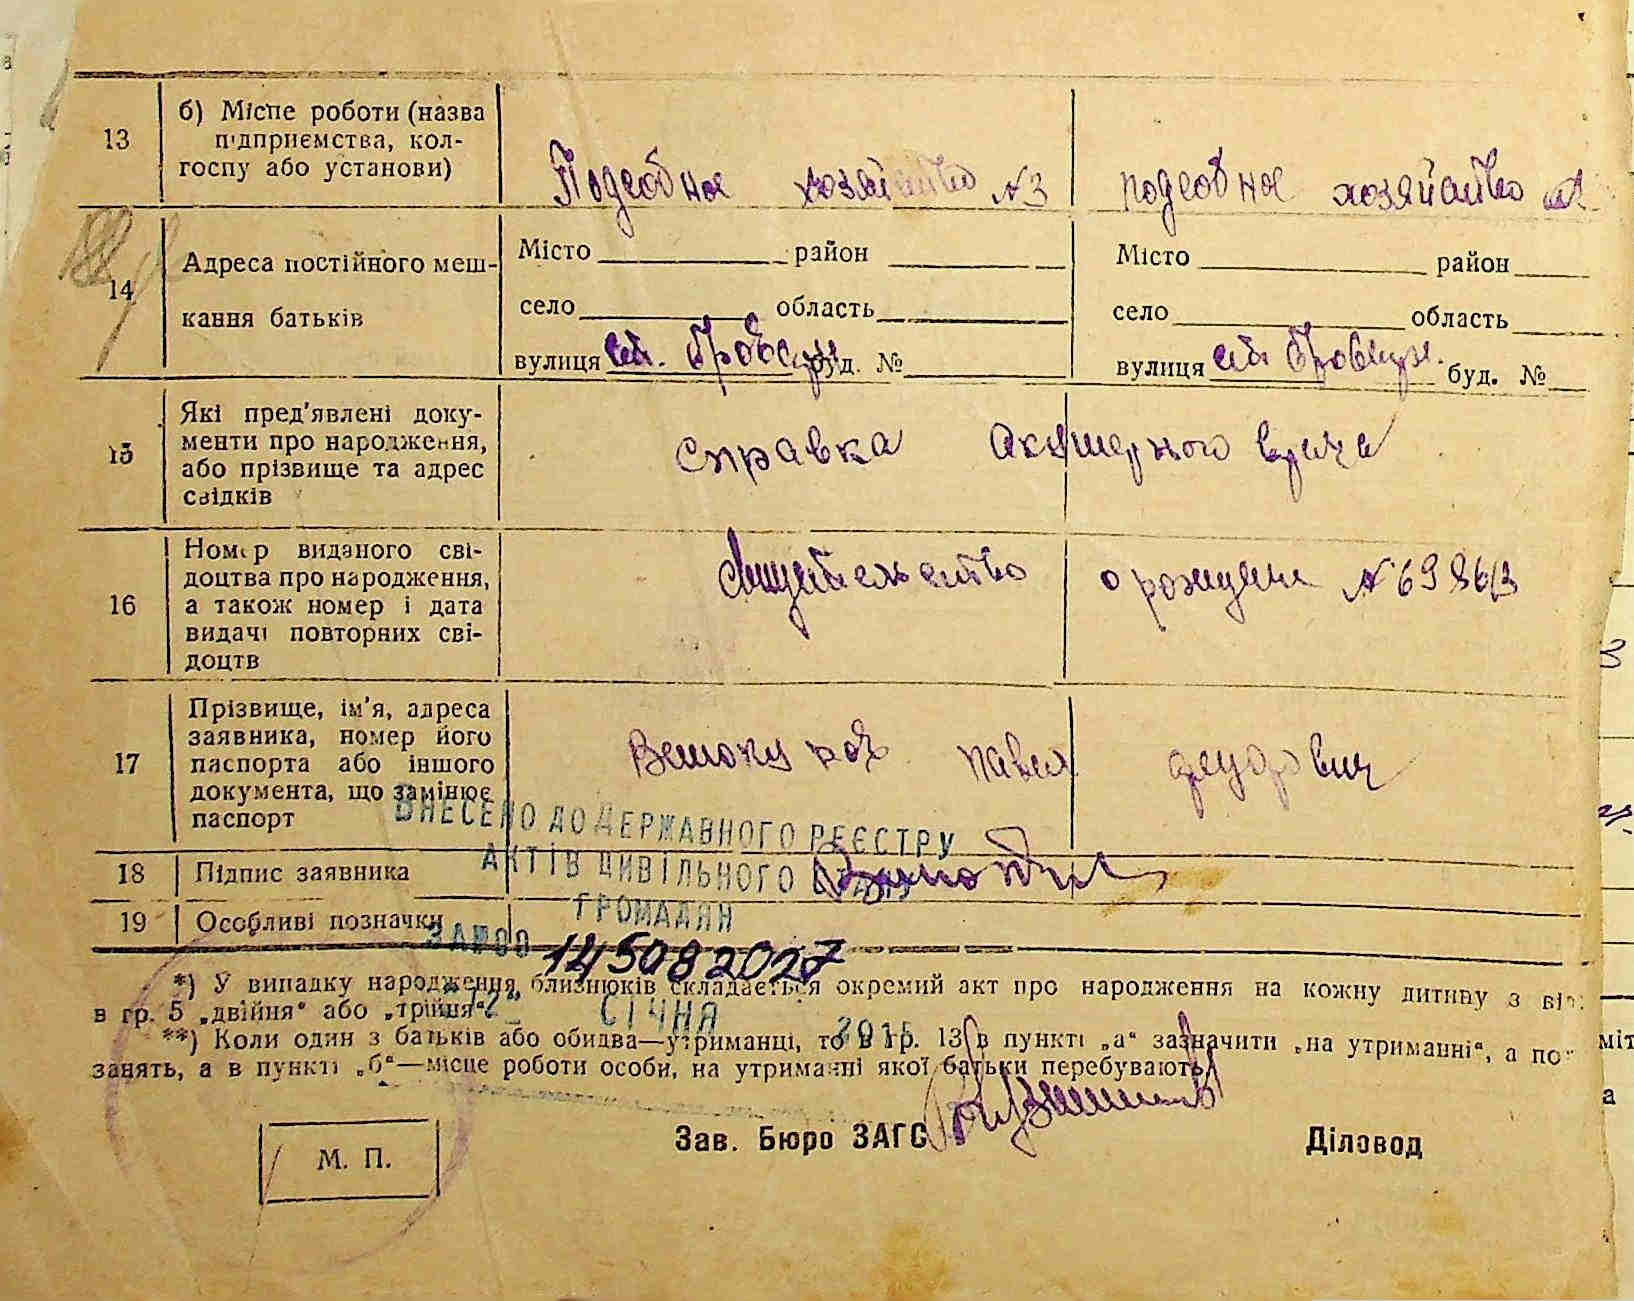 13
б) Місце роботи (назва
підприємства, кол-
госпу або установи)
Подсобное хозяйство №3
подсобное хозяйство
14
Адреса постійного меш-
кання батьків
Місто район
село область
вулиця ст. Бровари буд. №
Місто район
село область
вулиця ст Бровари буд. №
15
Які пред'явлені доку-
менти про народження,
або прізвище та адрес
свідків
справка акушерного врача
16
Номер виданого сві-
доцтва про народження,
а також номер і дата
видачі повторних сві-
доцтв
свидетельство о рождении №
17
Прізвище, ім'я, адреса
заявника, номер його
паспорта або іншого
документа, що замінює
паспорт
Павел
18
Підпис заявника
19
Особливі позначки
ВНЕСЕНО ДО ДЕРЖАВНОГО РЕЄСТРУ
АКТІВ ЦИВІЛЬНОГО СТАНУ
ГРОМАДЯН
ЗА №00 145082027
СІЧНЯ
*) У випадку народження близнюків складається окремий акт про народження на кожну дитину з
в гр. 5 „двійня“ або „трійня“.
**) Коли один з батьків або обидва—утриманці, то в гр. 13 в пункті „а“ зазначити „на утриманні“, а
занять, а в пункті „б“—місце роботи особи, на утриманні якої батьки перебувають.
М. П.
Зав. Бюро ЗАГС
Діловод